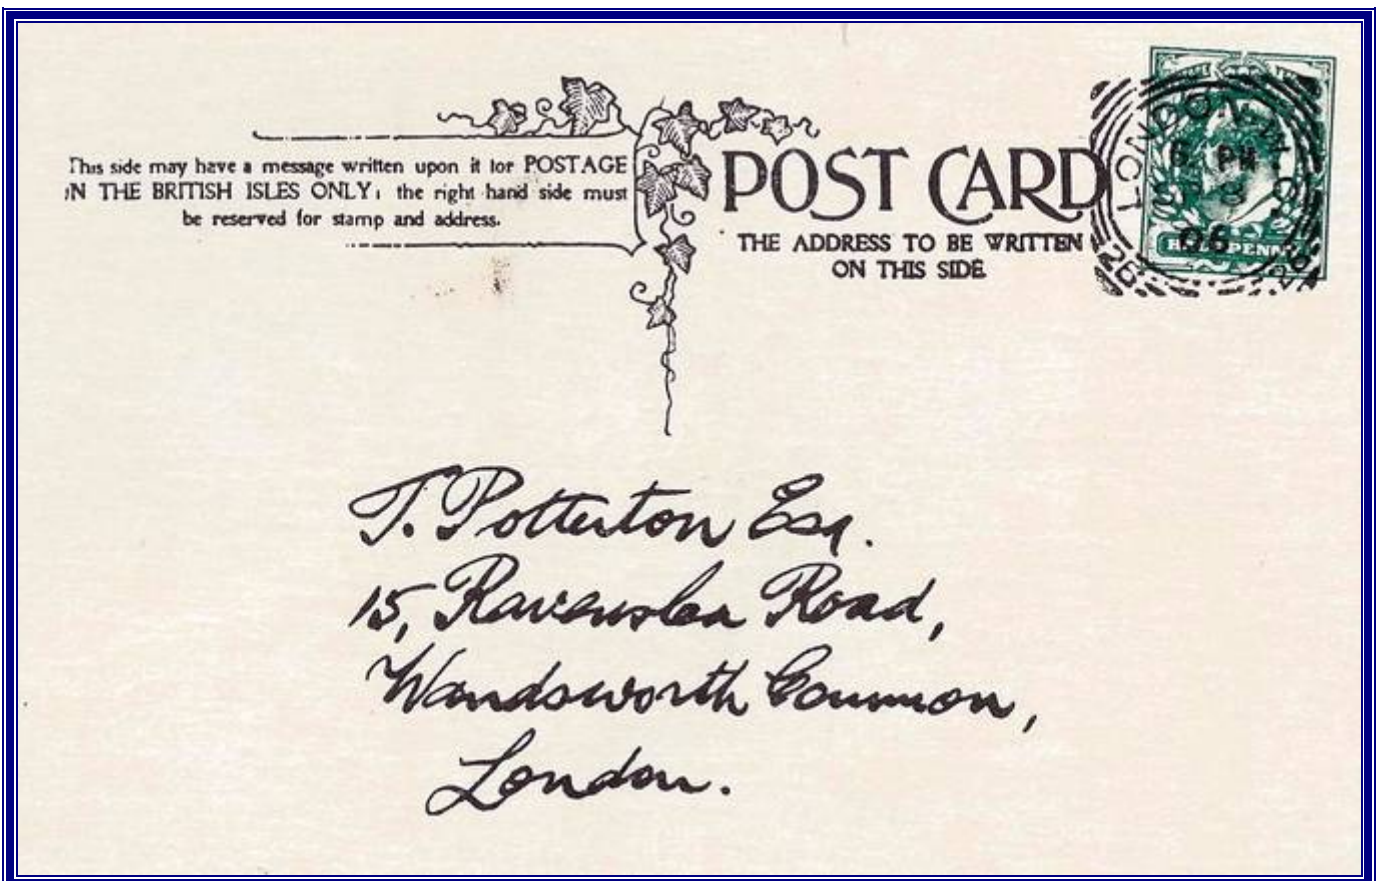 This side may have a message written upon it for POSTAGE
IN THE BRITISH ISLES ONLY: the right hand side must
be reserved for stamp and address.
POST CARD
THE ADDRESS TO BE WRITTEN
ON THIS SIDE
LONDON. W.C.
PM
06
26
T. Potterton Esq.
15, Ravenslea Road,
Wandsworth Common,
London.